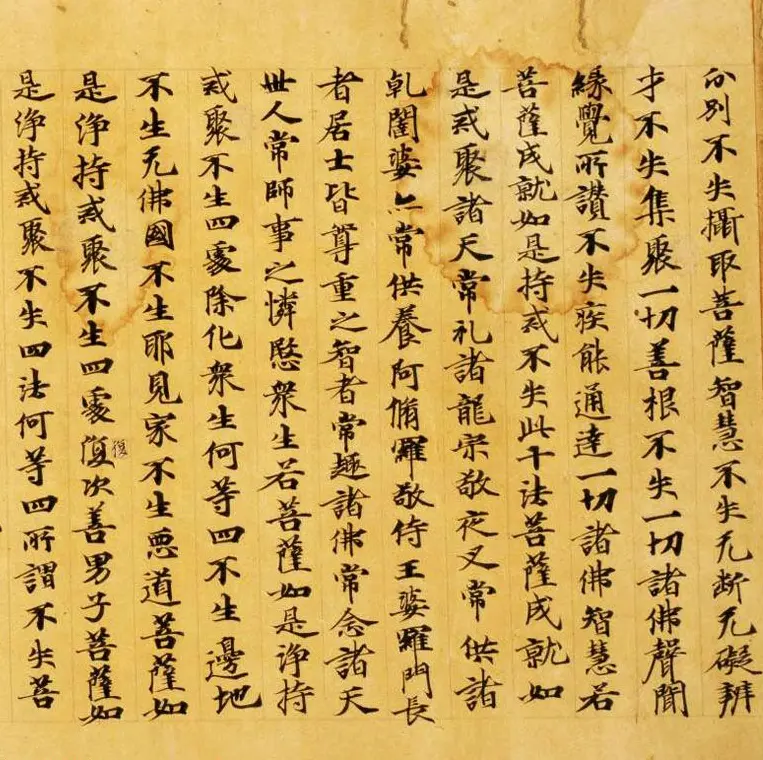 分別不失攝取菩薩智慧不失无断无礙辨
才不失集聚一切善根不失一切諸佛聲聞
緣覺所讚不失疾能通達一切諸佛智慧若
菩薩成就如是持戒不失此十法菩薩成就如
是戒聚諸天常礼諸龍宗敬夜叉常供諸
乹闥婆亦常供養阿脩羅敬侍王婆羅門長
者居士皆尊重之智者常趣諸佛常念諸天
世人常師事之憐愍衆生若菩薩如是淨持
戒聚不生四處除化衆生何等四不生邊地
不生无佛國不生耶見家不生惡道菩薩如
是淨持戒聚不生四處復次善男子菩薩如
復
是淨持戒聚不失四法何等四所謂不失菩